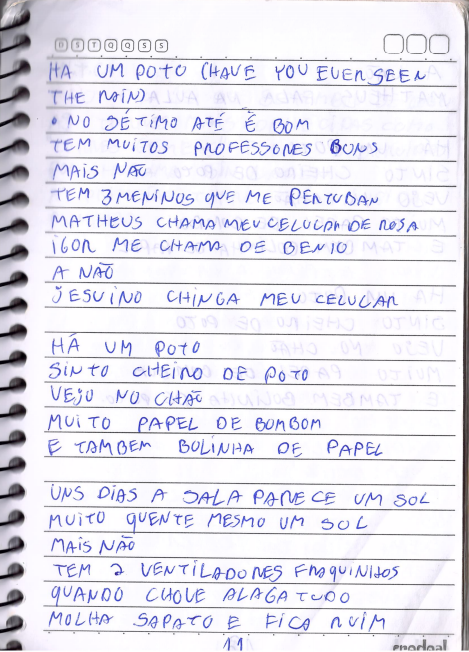 D S T Q Q S S
HA UM POTO (HAVE YOU EVER SEEN
THE RAIN)
• NO SÉTIMO ATÉ É BOM
TEM MUITOS PROFESSORES BONS
MAIS NÃO
TEM 3 MENINOS QUE ME PERTUBAN
MATHEUS CHAMA MEU CELULAR DE ROSA
IGOR ME CHAMA DE BENIO
A NÃO
JESUINO CHINGA MEU CELULAR
HÁ UM POTO
SINTO CHEIRO DE POTO
VEJO NO CHÃO
MUITO PAPEL DE BOMBOM
E TAMBEM BOLINHA DE PAPEL
UNS DIAS A SALA PARECE UM SOL
MUITO QUENTE MESMO UM SOL
MAIS NÃO
TEM 2 VENTILADORES FRAQUINHOS
QUANDO CHOVE ALAGA TUDO
MOLHA SAPATO E FICA RUIM
11